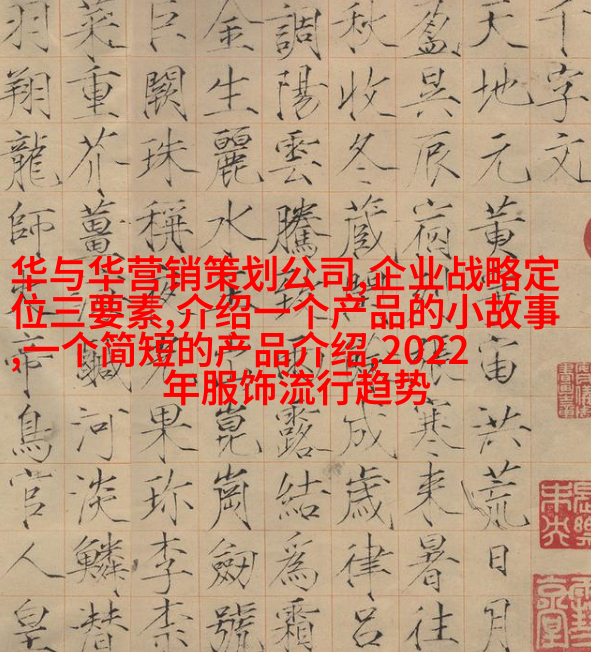 华与华营销策划公司,企业战略定
位三要素,介绍一个产品的小故事
,一个简短的产品介绍,2022
年服饰流行趋势
千字文
天地元黃宙洪荒日月
盈昃辰宿張寒来暑往
秋收冬藏閏成歲律呂
調陽雲騰致雨露結為霜
金生麗水崑崗劍號
巨闕珠稱夜果珍李柰
菜重芥薑海鹹河淡鱗潛
羽翔龍師火帝鳥官人皇